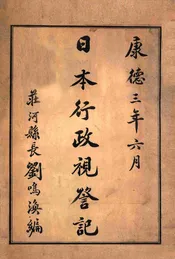 康德三年六月
日本行政視詧記
莊河縣長劉鳴渙編